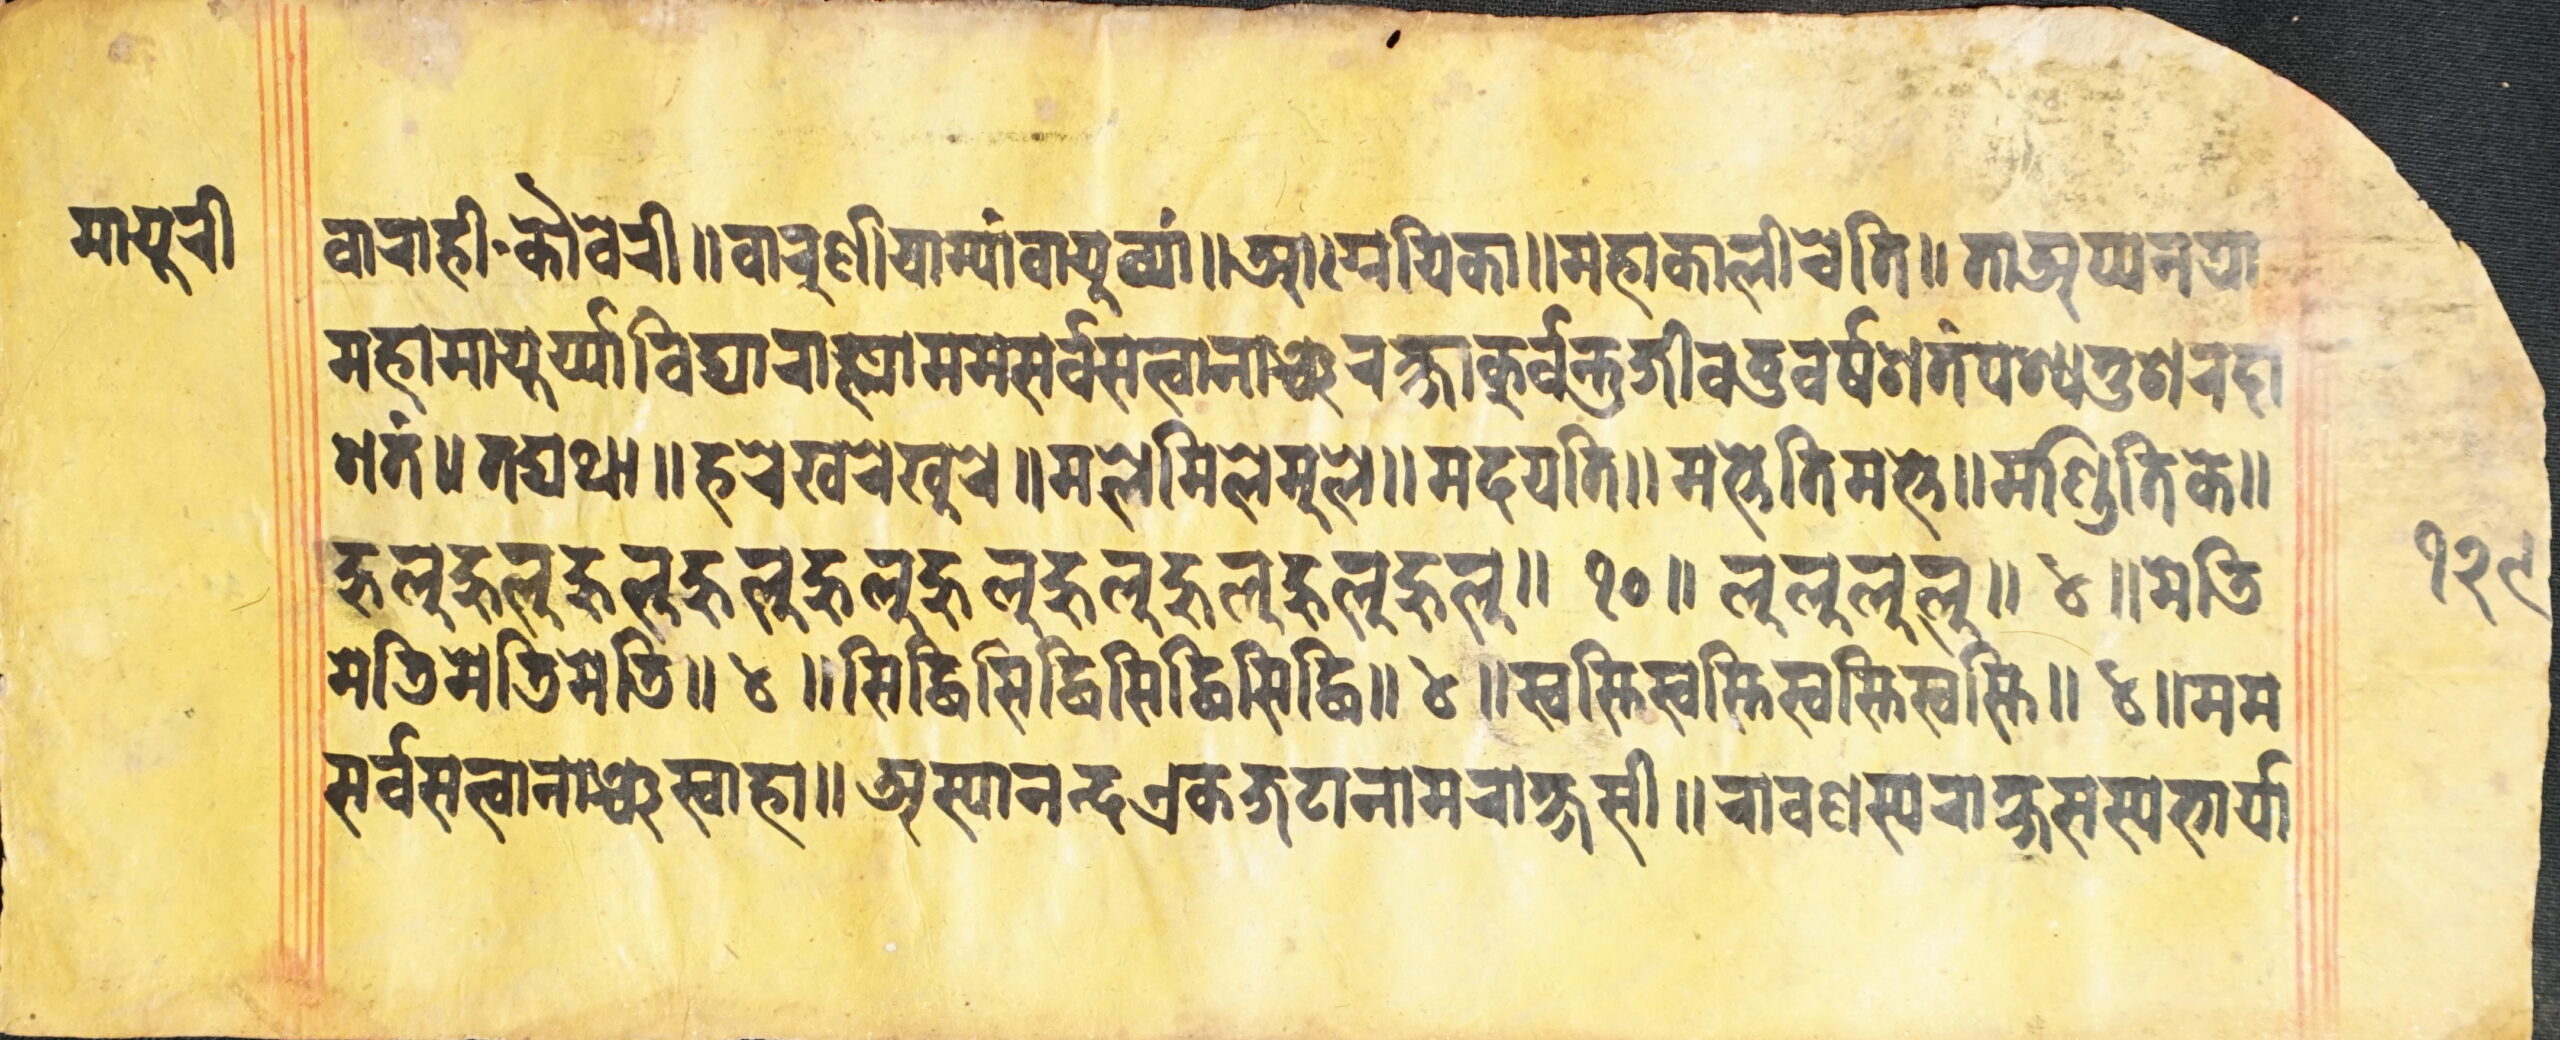 मायूरी
वाराही-कौवेरी॥वारुणीयाम्यांवायुव्यां॥आग्नयिका॥महाकालीचेति॥ताअप्यनया
महामायूर्य्याविद्याराज्ञ्याममसर्वसत्वानाञ्चरक्षाकुर्वन्तुजीवतुवर्षशतंपश्यतुशरदा
शतं॥तद्यथा॥हरेखरेखुरे॥मलेमिलेमूले॥मदयति॥मत्तेतिमत्ते॥मण्डितिके॥
हुलुहुलुहुलुहुलुहुलुहुलुहुलुहुलुहुलुहुलु॥१०॥लुलुलुलु॥४॥मेडि
मेडिमेडिमेडि॥४॥सिद्धिसिद्धिसिद्धिसिद्धि॥४॥स्वस्तिस्वस्तिस्वस्तिस्वस्ति॥४॥मम
सर्वसत्वानाञ्चस्वाहा॥अस्यानन्दएकजटानामराक्षसी॥रावणस्यराक्षसस्यभार्या
१२९